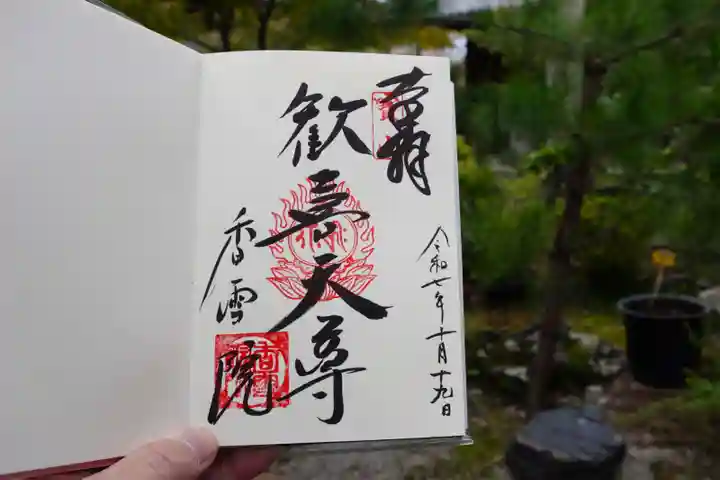 奉拝
歓喜天尊
香雪院
令和七年十月十九日